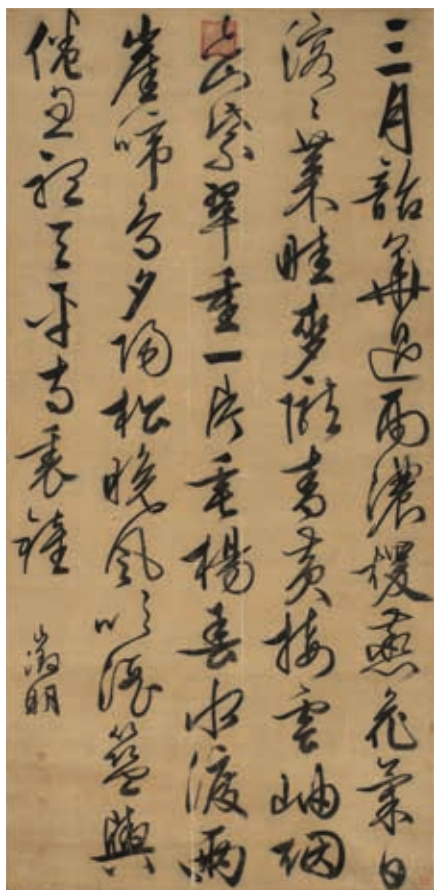 三月韶華過雨濃煖蒸花氣日
溶〻菜畦麥隴青黃接雲岫烟
巒紫翠重一片垂楊春水渡兩
崖啼鳥夕陽松晚風吹酒籃輿
倦忽聽天平寺裏鐘
徵明